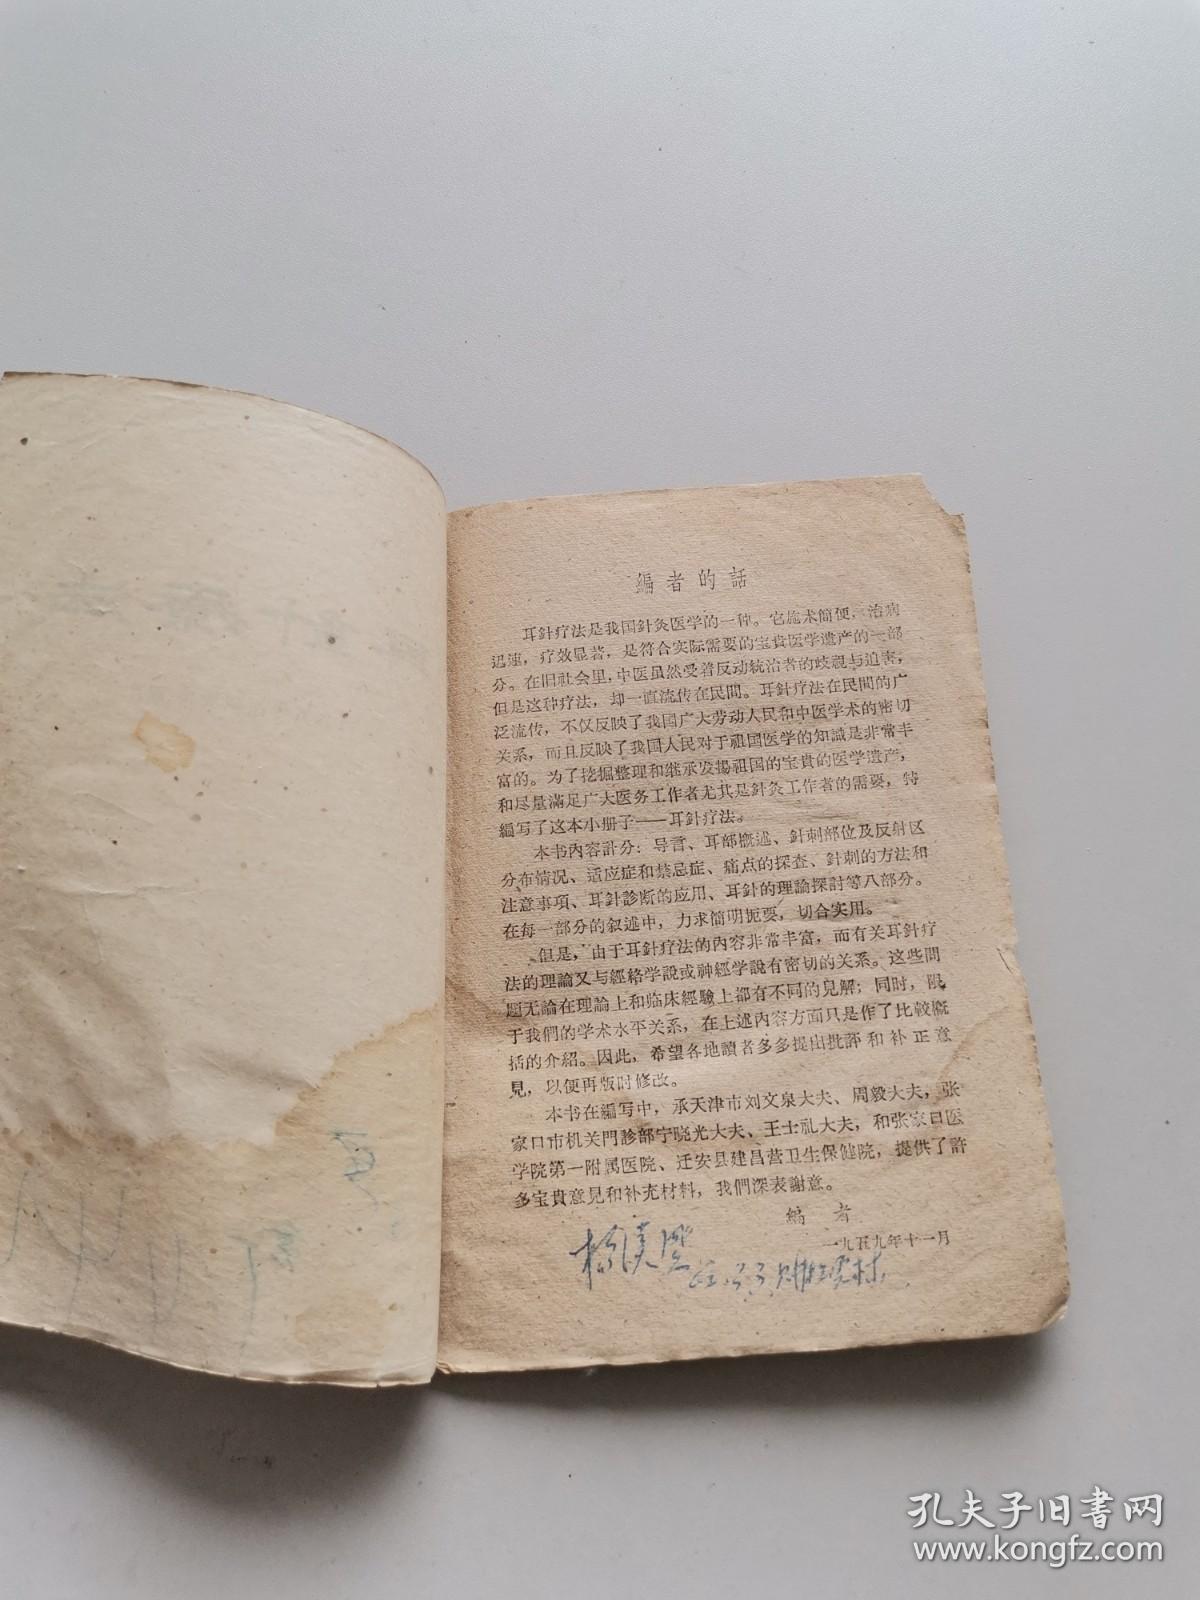 編者的話
耳針疗法是我国針灸医学的一种。它施术簡便，治病
迅速，疗效显著，是符合实际需要的宝貴医学遺产的一部
分。在旧社会里，中医虽然受着反动統治者的歧視与迫害，
但是这种疗法，却一直流传在民間。耳針疗法在民間的广
泛流传，不仅反映了我国广大劳动人民和中医学术的密切
关系，而且反映了我国人民对于祖国医学的知識是非常丰
富的。为了挖掘整理和継承发揚祖国的宝貴的医学遺产，
和尽量滿足广大医务工作者尤其是針灸工作者的需要，特
編写了这本小册子——耳針疗法。
本书內容計分：导言、耳部概述、針刺部位及反射区
分布情况、适应症和禁忌症、痛点的探查、針刺的方法和
注意事項、耳針診断的应用、耳針的理論探討等八部分。
在每一部分的叙述中，力求簡明扼要，切合实用。
但是，由于耳針疗法的內容非常丰富，而有关耳針疗
法的理論又与經絡学說或神經学說有密切的关系。这些問
題无論在理論上和临床經驗上都有不同的見解；同时，限
于我們的学术水平关系，在上述內容方面只是作了比較概
括的介紹。因此，希望各地讀者多多提出批評和补正意
見，以便再版时修改。
本书在編写中，承天津市刘文泉大夫、周毅大夫，张
家口市机关門診部宁晓光大夫、王士礼大夫，和张家口医
学院第一附属医院、迁安县建昌营卫生保健院，提供了許
多宝貴意見和补充材料，我們深表謝意。
編者
一九五九年十一月
孔夫子旧书网
www.kongfz.com